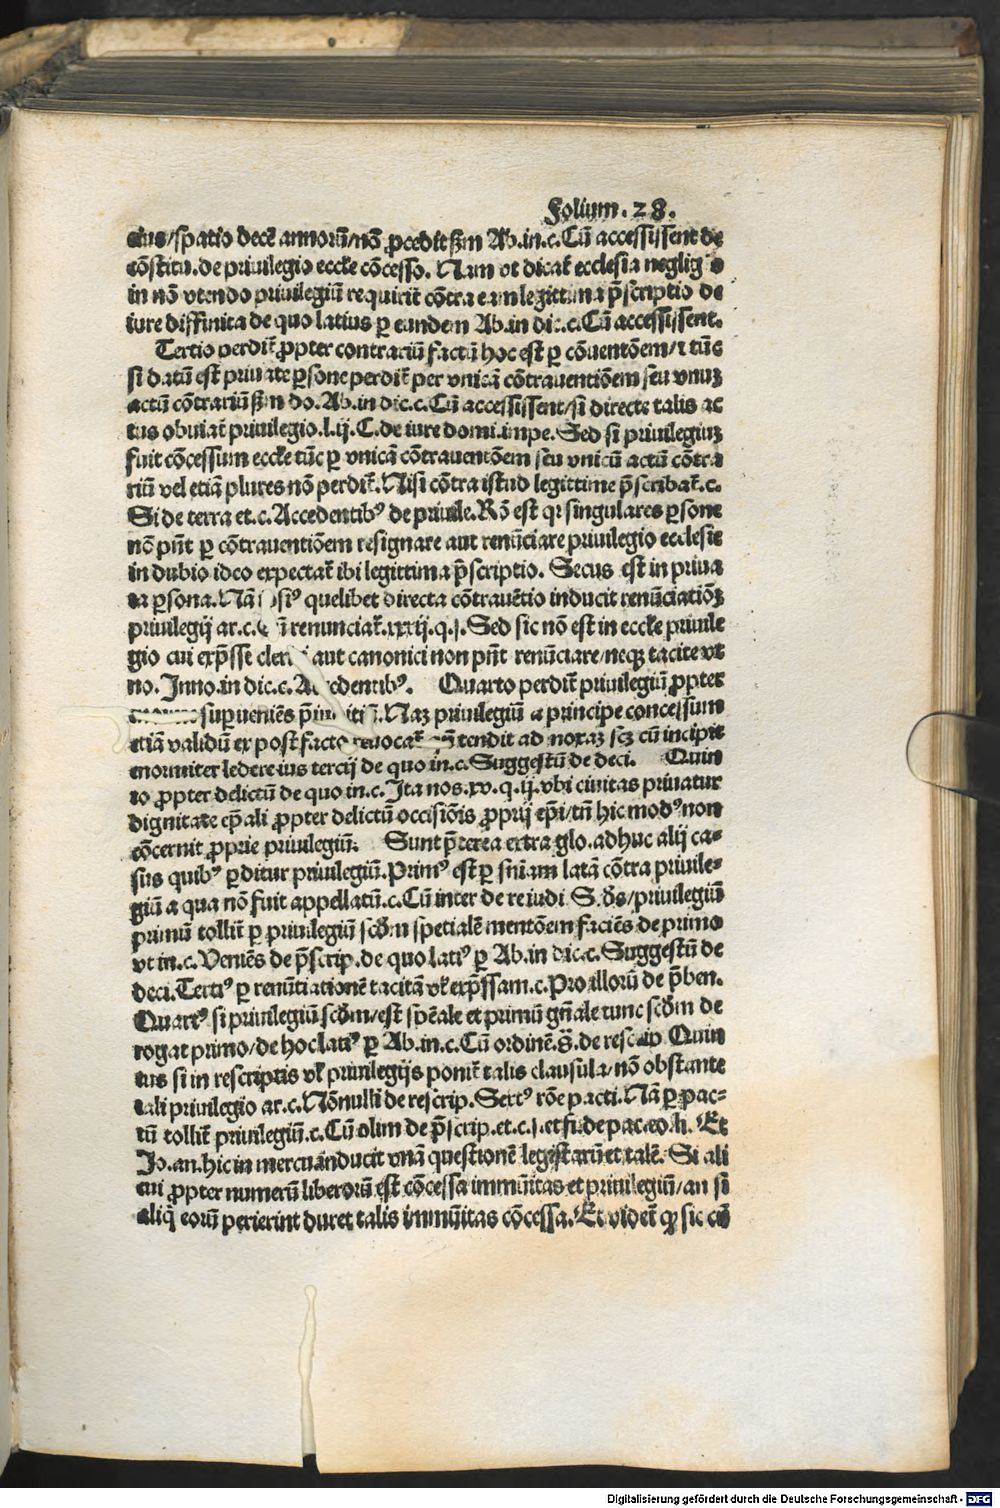 Folium. 28.
eius/spatio decē annorū/nō ꝓcedit ẜm Ab.in.c.Cū accessissent de
cōstitu.de priuilegio eccłie cōcesso. Nam vt dicat᷑ ecclesia neglig
in nō vtendo priuilegiū requirit᷑ cōtra eam legittima p̄scriptio de
iure diffinita de quo latius ꝑ eundem Ab.in dic.c.Cū accessissent.
Tertio perdit᷑ ꝓpter contrariū factū hoc est ꝑ cōuentōem/⁊ tūc
si datū est priuate ꝑsone perdit᷑ per vnicā cōtrauentiōem seu vnuꝫ
actū cōtrariū ẜm do.Ab.in dic.c.Cū accessissent/si directe talis ac
tus obuiat᷑ priuilegio.l.ij.C.de iure domi.impe.Sed si priuilegiuꝫ
fuit cōcessum eccłie tūc ꝑ vnicā cōtrauentōem seu vnicū actū cōtra
riū vel etiā plures nō perdit᷑.Nisi cōtra istud legittime p̄scribat᷑.c.
Si de terra et.c.Accedentibꝰ de priuile.Rō est qꝛ singulares ꝑsone
nō pn̄t ꝑ cōtrauentiōem resignare aut renūciare priuilegio ecclesie
in dubio ideo expectat᷑ ibi legittima p̄scriptio. Secus est in priua
ta ꝑsona.Nā quelibet directa cōtrauētio inducit renūciatiōꝫ
priuilegij ar.c. renunciat᷑.xxxij.q.j.Sed sic nō est in eccłie priuile
gio cui exp̄sse clerici aut canonici non pn̄t renūciare/neqꝫ tacite vt
no. Inno.in dic.c.Accedentibꝰ. Quarto perdit᷑ priuilegiū ꝓpter
suꝑueniēs Naꝫ priuilegiū a principe concessum
etiā validū ex post facto reuocat᷑ tendit ad noxaꝫ scꝫ cū incipit
enormiter ledere ius tercij de quo in.c.Suggestū de deci. Quin
to ꝓpter delictū de quo in.c.Ita nos.xv.q.ij.vbi ciuitas priuatur
dignitate ep̄ali ꝓpter delictū occisiōis ꝓprij ep̄i/tn̄ hic modꝰ non
cōcernit ꝓprie priuilegiū. Sunt p̄terea extra glo.adhuc alij ca-
sus quibꝰ ꝑditur priuilegiū.Primꝰ est ꝑ sn̄iam latā cōtra priuile-
giū a qua nō fuit appellatū.c.Cū inter de re iudi. Scd̄s/priuilegiū
primū tollit᷑ ꝑ priuilegiū scd̄m specialē mentōem faciēs de primo
vt in.c.Veniēs de p̄scrip.de quo latiꝰ ꝑ Ab.in dic.c.Suggestū de
deci.Tertiꝰ ꝑ renūtiationē tacitā vł exp̄ssam.c.Pro illorū de p̄ben.
Quartꝰ si priuilegiū scd̄m/est sp̄eale et primū gn̄ale tunc scd̄m de
rogat primo/de hoc latiꝰ ꝑ Ab.in.c.Cū ordinē.§.de rescrip Quin
tus si in rescriptis vł priuilegijs ponit᷑ talis clausula/nō obstante
tali priuilegio ar.c.Nōnulli de rescrip.Sextꝰ rōe pacti.Nā ꝑ pac-
tū tollit᷑ priuilegiū.c.Cū olim de p̄scrip.et.c.j.et fi.de pac.eo.li. Et
Jo.an.hic in mercu.inducit vnā questionē legistarū et talē. Si ali
cui ꝓpter numerū liberorū est cōcessa immūitas et priuilegiū/an si
aliqͥ eorū perierint duret talis immūitas cōcessa.Et videt᷑ ꝙ sic cū
Digitalisierung gefördert durch die Deutsche Forschungsgemeinschaft - DFG